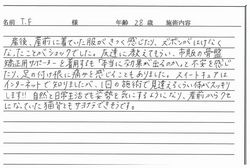 名前 T.F 様 年齢 28 歳 施術内容
産後、産前に着ていた服がきつく感じたり、ズボンがはけなく
なったことがショックでした。友達に教えてもらい、市販の骨盤
矯正用サポーターを着用するも"本当に効果が出るのか"と不安を感じ
たり、足の付け根に痛みを感じることもありました。スイートキュアは
インターネットで知りましたが、1回の施術で見違えるくらい体がスッキリ
します!!自然と日常生活でも姿勢を気にするようになり、産前からクセ
になっていた猫背ともサヨナラできそうです。